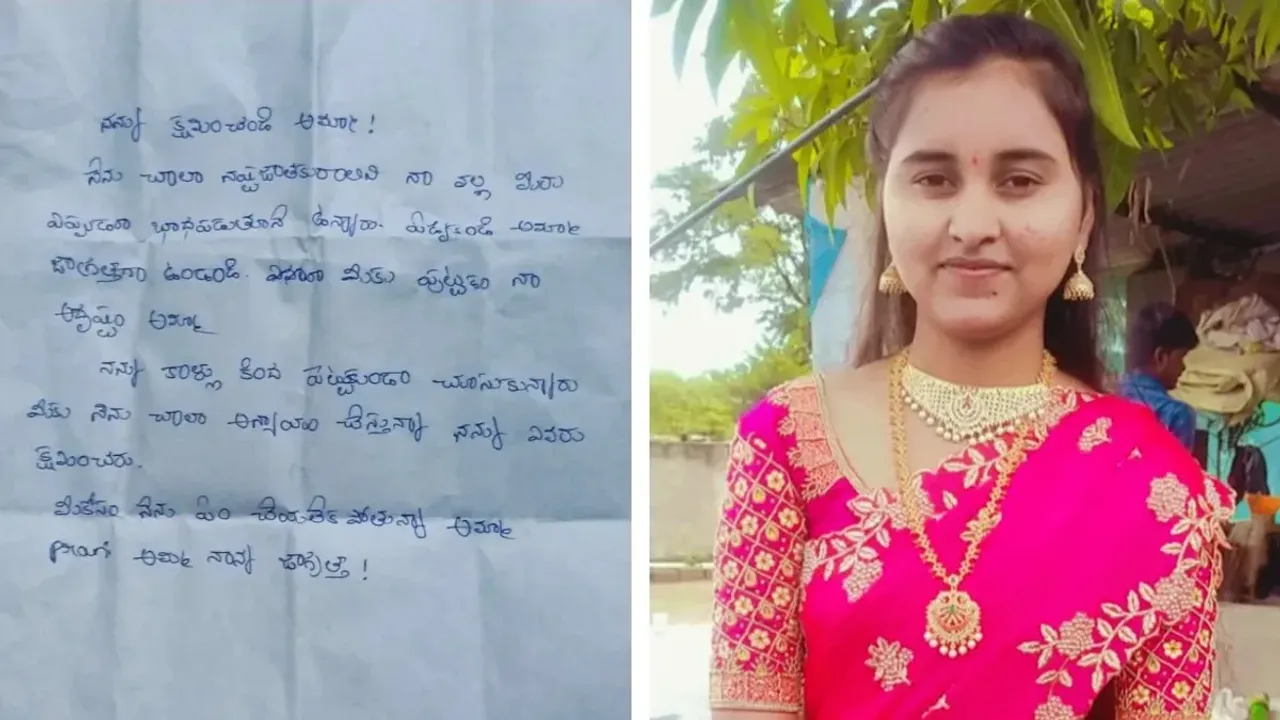 నన్ను క్షమించండి అమ్మా!
నేను చాలా నష్టజాతకురాలిని నా వల్ల మీరు
ఎప్పుడూ బాధపడుతూనే ఉన్నారు. ఏడ్వకండి అమ్మా
జాగ్రత్తగా ఉండండి. మీకు పుట్టడం నా
అదృష్టం అమ్మా
నన్ను కాళ్లు కింద పెట్టకుండా చూసుకున్నారు
మీకు నేను చాలా అన్యాయం చేస్తున్నా నన్ను ఎవరు
క్షమించరు.
మీకోసం నేను ఏం చేయలేక పోతున్నా అమ్మా
అమ్మ నాన్న జాగ్రత్త!